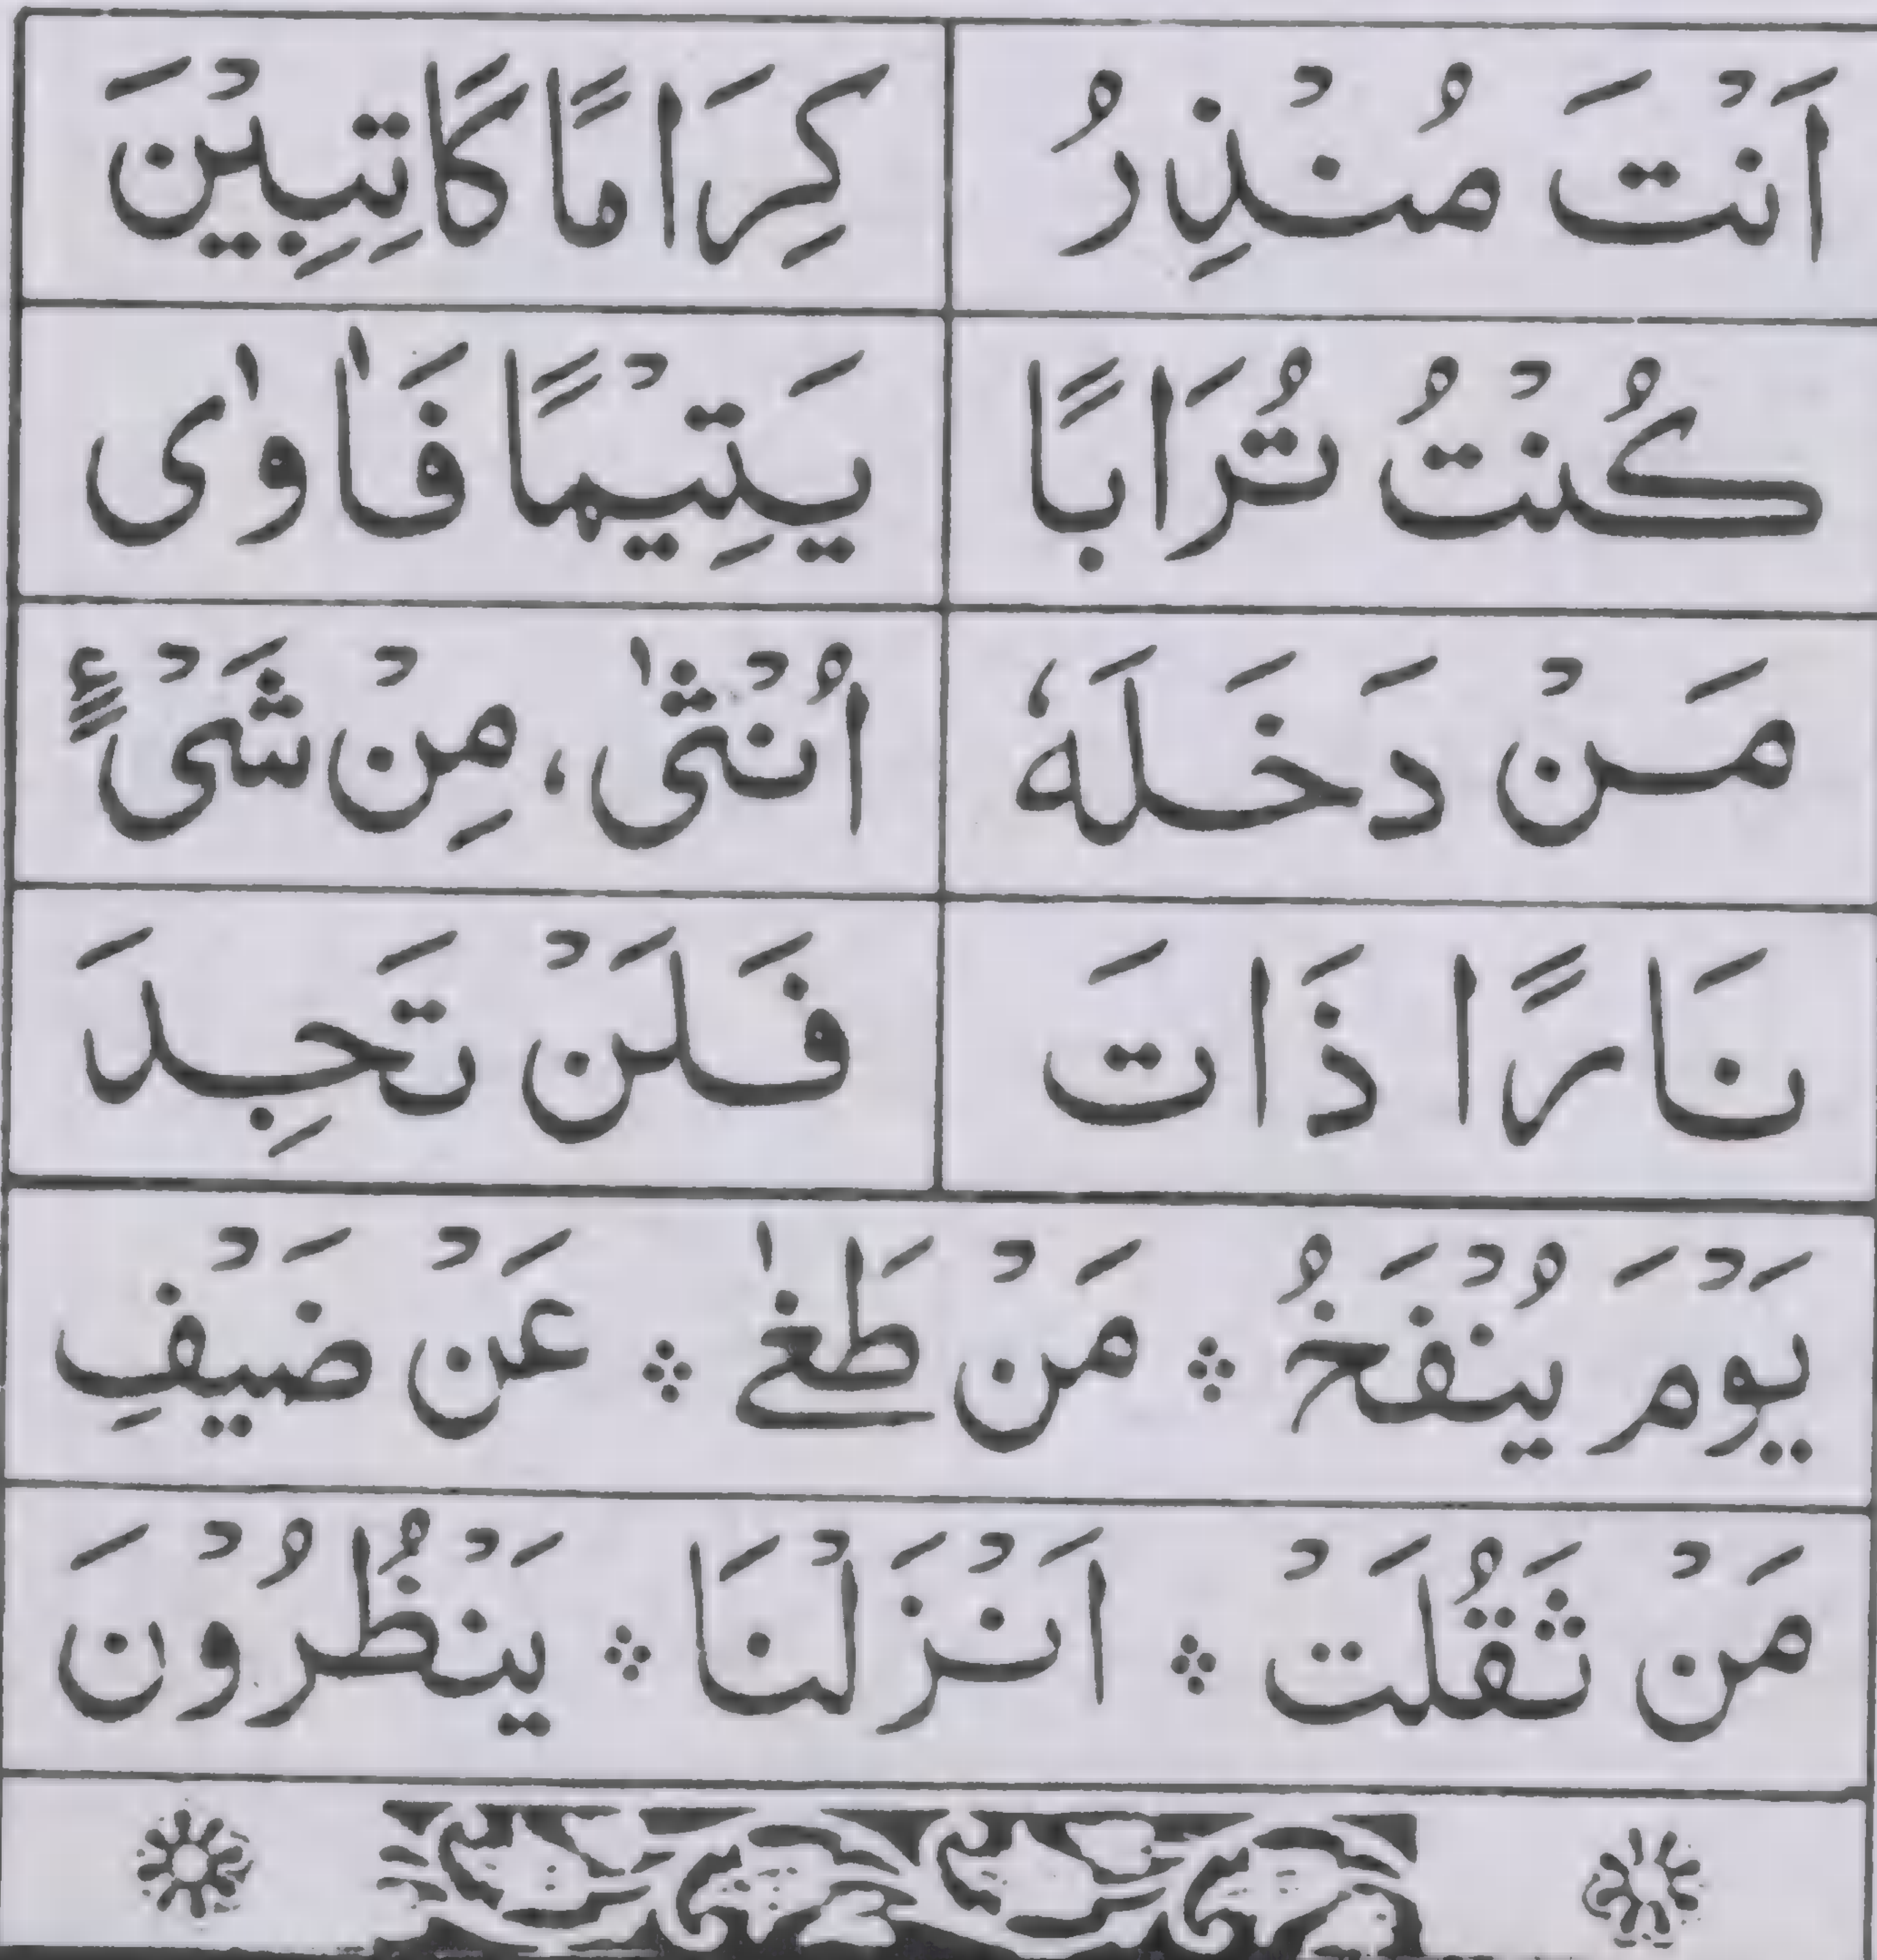 اَنْتَ مُنْذِرُ كِرَامًا كَاتِبِيْنَ
كُنْتُ تُرَابًا يَتِيْمًا فَاٰوٰى
مَنْ دَخَلَهٗ اُنْثٰى، مِنْ شَىْءٍ
نَارًا ذَاتَ فَلَنْ تَجِدَ
يَوْمَ يُنْفَخُ ܀ مَنْ طَغٰے ܀ عَنْ ضَيْفِ
مَنْ ثَقُلَتْ ܀ اَنْزَلْنَا ܀ يَنْظُرُوْنَ